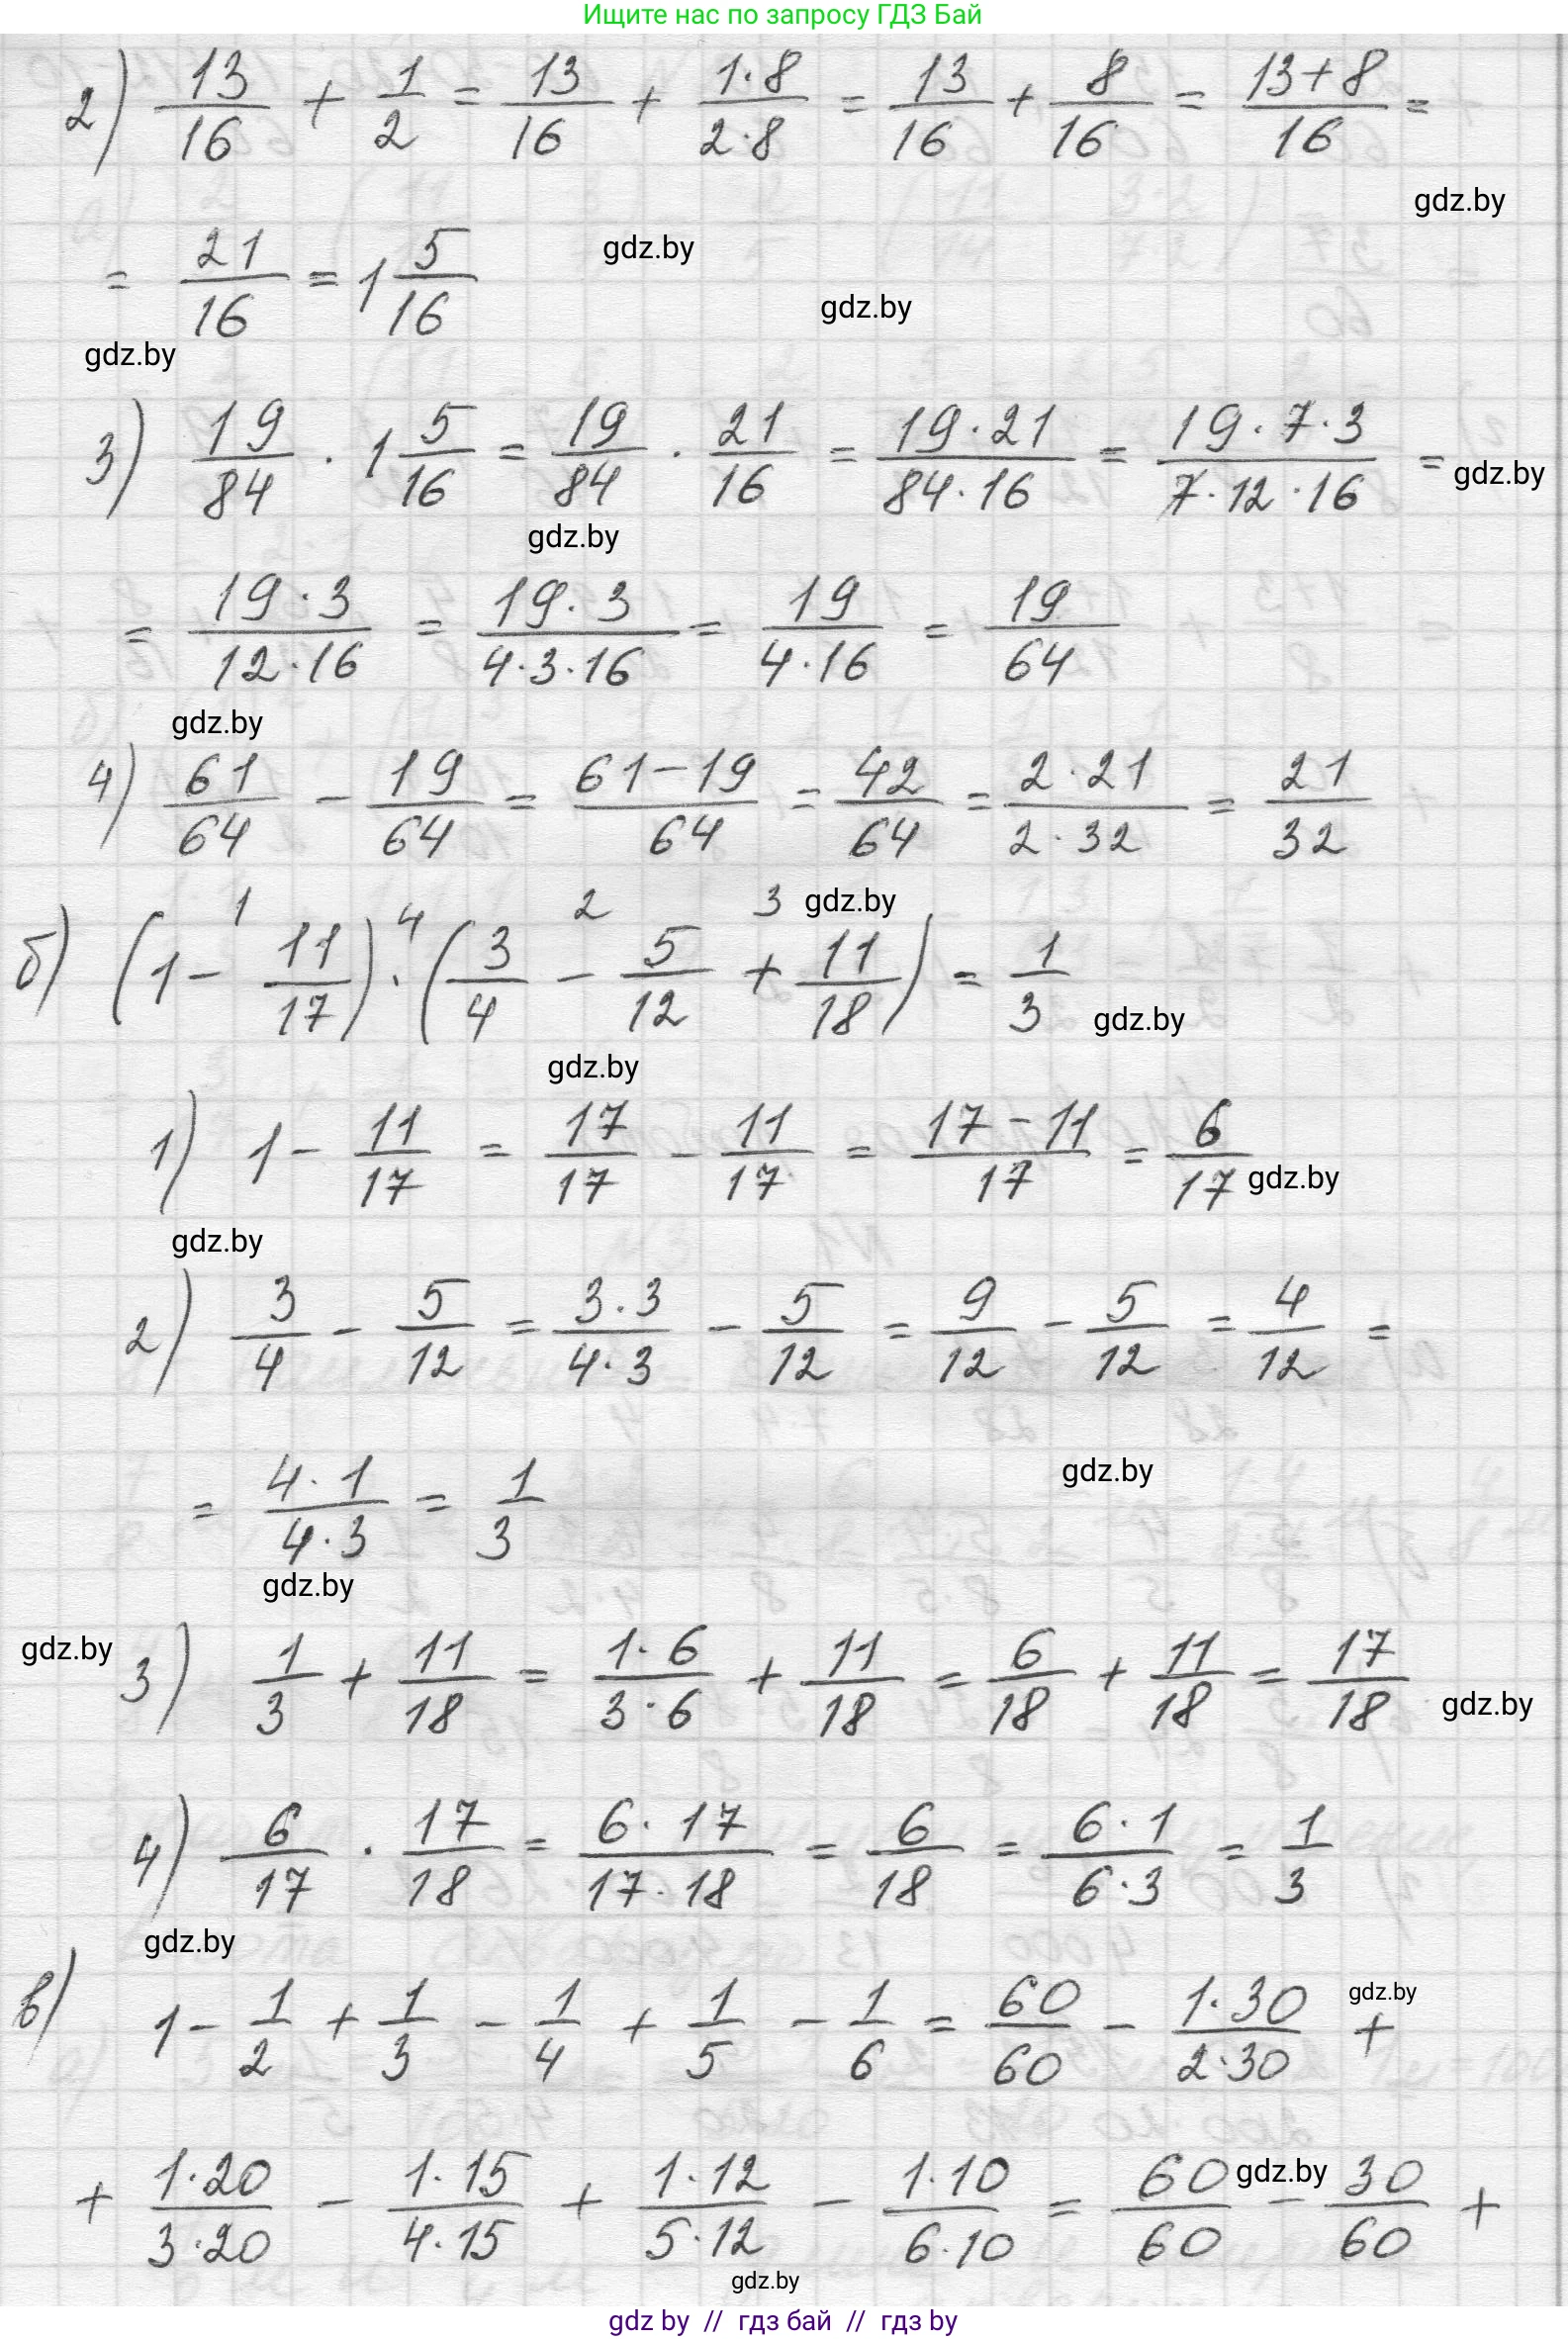 Ищите нас по запросу ГДЗ Бай
2) 13/16 + 1/2 = 13/16 + 1·8/2·8 = 13/16 + 8/16 = 13+8/16 =
gdz.by
= 21/16 = 1 5/16 gdz.by
gdz.by
gdz.by
3) 19/84 · 1 5/16 = 19/84 · 21/16 = 19·21/84·16 = 19·7·3/7·12·16 = gdz.by
gdz.by
= 19·3/12·16 = 19·3/4·3·16 = 19/4·16 = 19/64
gdz.by
4) 61/64 - 19/64 = 61-19/64 = 42/64 = 2·21/2·32 = 21/32
1 4 2 3 gdz.by
б) (1 - 11/17) · (3/4 - 5/12 + 11/18) = 1/3 gdz.by
gdz.by
1) 1 - 11/17 = 17/17 - 11/17 = 17-11/17 = 6/17 gdz.by
gdz.by
2) 3/4 - 5/12 = 3·3/4·3 - 5/12 = 9/12 - 5/12 = 4/12 =
= 4·1/4·3 = 1/3 gdz.by
gdz.by
gdz.by 3) 1/3 + 11/18 = 1·6/3·6 + 11/18 = 6/18 + 11/18 = 17/18 gdz.by
4) 6/17 · 17/18 = 6·17/17·18 = 6/18 = 6·1/6·3 = 1/3
gdz.by
в) 1 - 1/2 + 1/3 - 1/4 + 1/5 - 1/6 = 60/60 - 1·30/2·30 + gdz.by
+ 1·20/3·20 - 1·15/4·15 + 1·12/5·12 - 1·10/6·10 = 60/60 - 30/60 + gdz.by
gdz.by
gdz by // гдз бай // гдз by